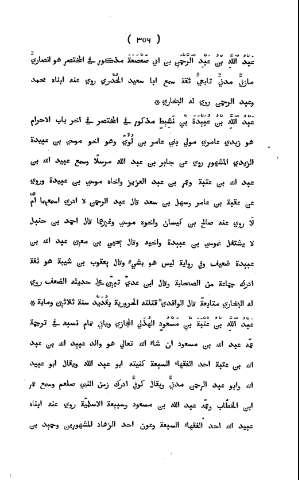 ( ٣٥٦ )
عبد الله بن عبد الرحمن بن ابي صعصعة مذكور في المختصر هو انصاري
مازني مدني تابعي ثقة سمع ابا سعيد الخدري روي عنه ابناه محمد
وعبد الرحمن روي له البخاري
عبد الله بن عبيدة بن نشيط مذكور في المختصر في اخر باب الاحرام
هو زيدي عامري مولي بني عامر بن لوي وهو اخو موسي بن عبيدة
الزيدي المشهور روي عن جابر بن عبد الله مرسلا وسمع عبيد الله بن
عبد الله بن عقبة وعمر بن عبد العزيز واخاه موسي بن عبيدة وروي
عن عقبة بن عامر وسهل بن سعد قال عبد الرحمن لا ادري اسمعها ام
لا روي عنه صالح بن كيسان واخوه موسي وغيرها قال احمد بن حنبل
لا يشتغل بموسي بن عبيدة واخيه وقال يحيي بن معين عبد الله بن
عبيدة ضعيف وفي رواية ليس هو بشيء وقال يعقوب بن شيبة هو ثقة
ادرك جماعة من الصحابة وقال ابن عدي تبين علي حديثه الضعف روي
له البخاري متابعة قال الواقدي قتلته الحرورية بقديد سنة ثلاثين وماية
عبد الله بن عتبة بن مسعود الهذلي الحجازي وياتي تمام نسبه في ترجمة
عمه عبد الله بن مسعود ان شاء الله تعالي هو والد عبيد الله بن عبد
الله بن عتبة احد الفقهاء السبعة كنيته ابو عبد الله ويقال ابو عبيد
الله وابو عبد الرحمن مدني ويقال كوفي ادرك زمن النبي صلعم وسمع عمر
بن الخطاب وعمه عبد الله بن مسعود وسبيعة الاسلمية روي عنه ابناه
عبيد الله احد الفقهاء السبعة وعون احد الزهاد المشهورين وحميد بن